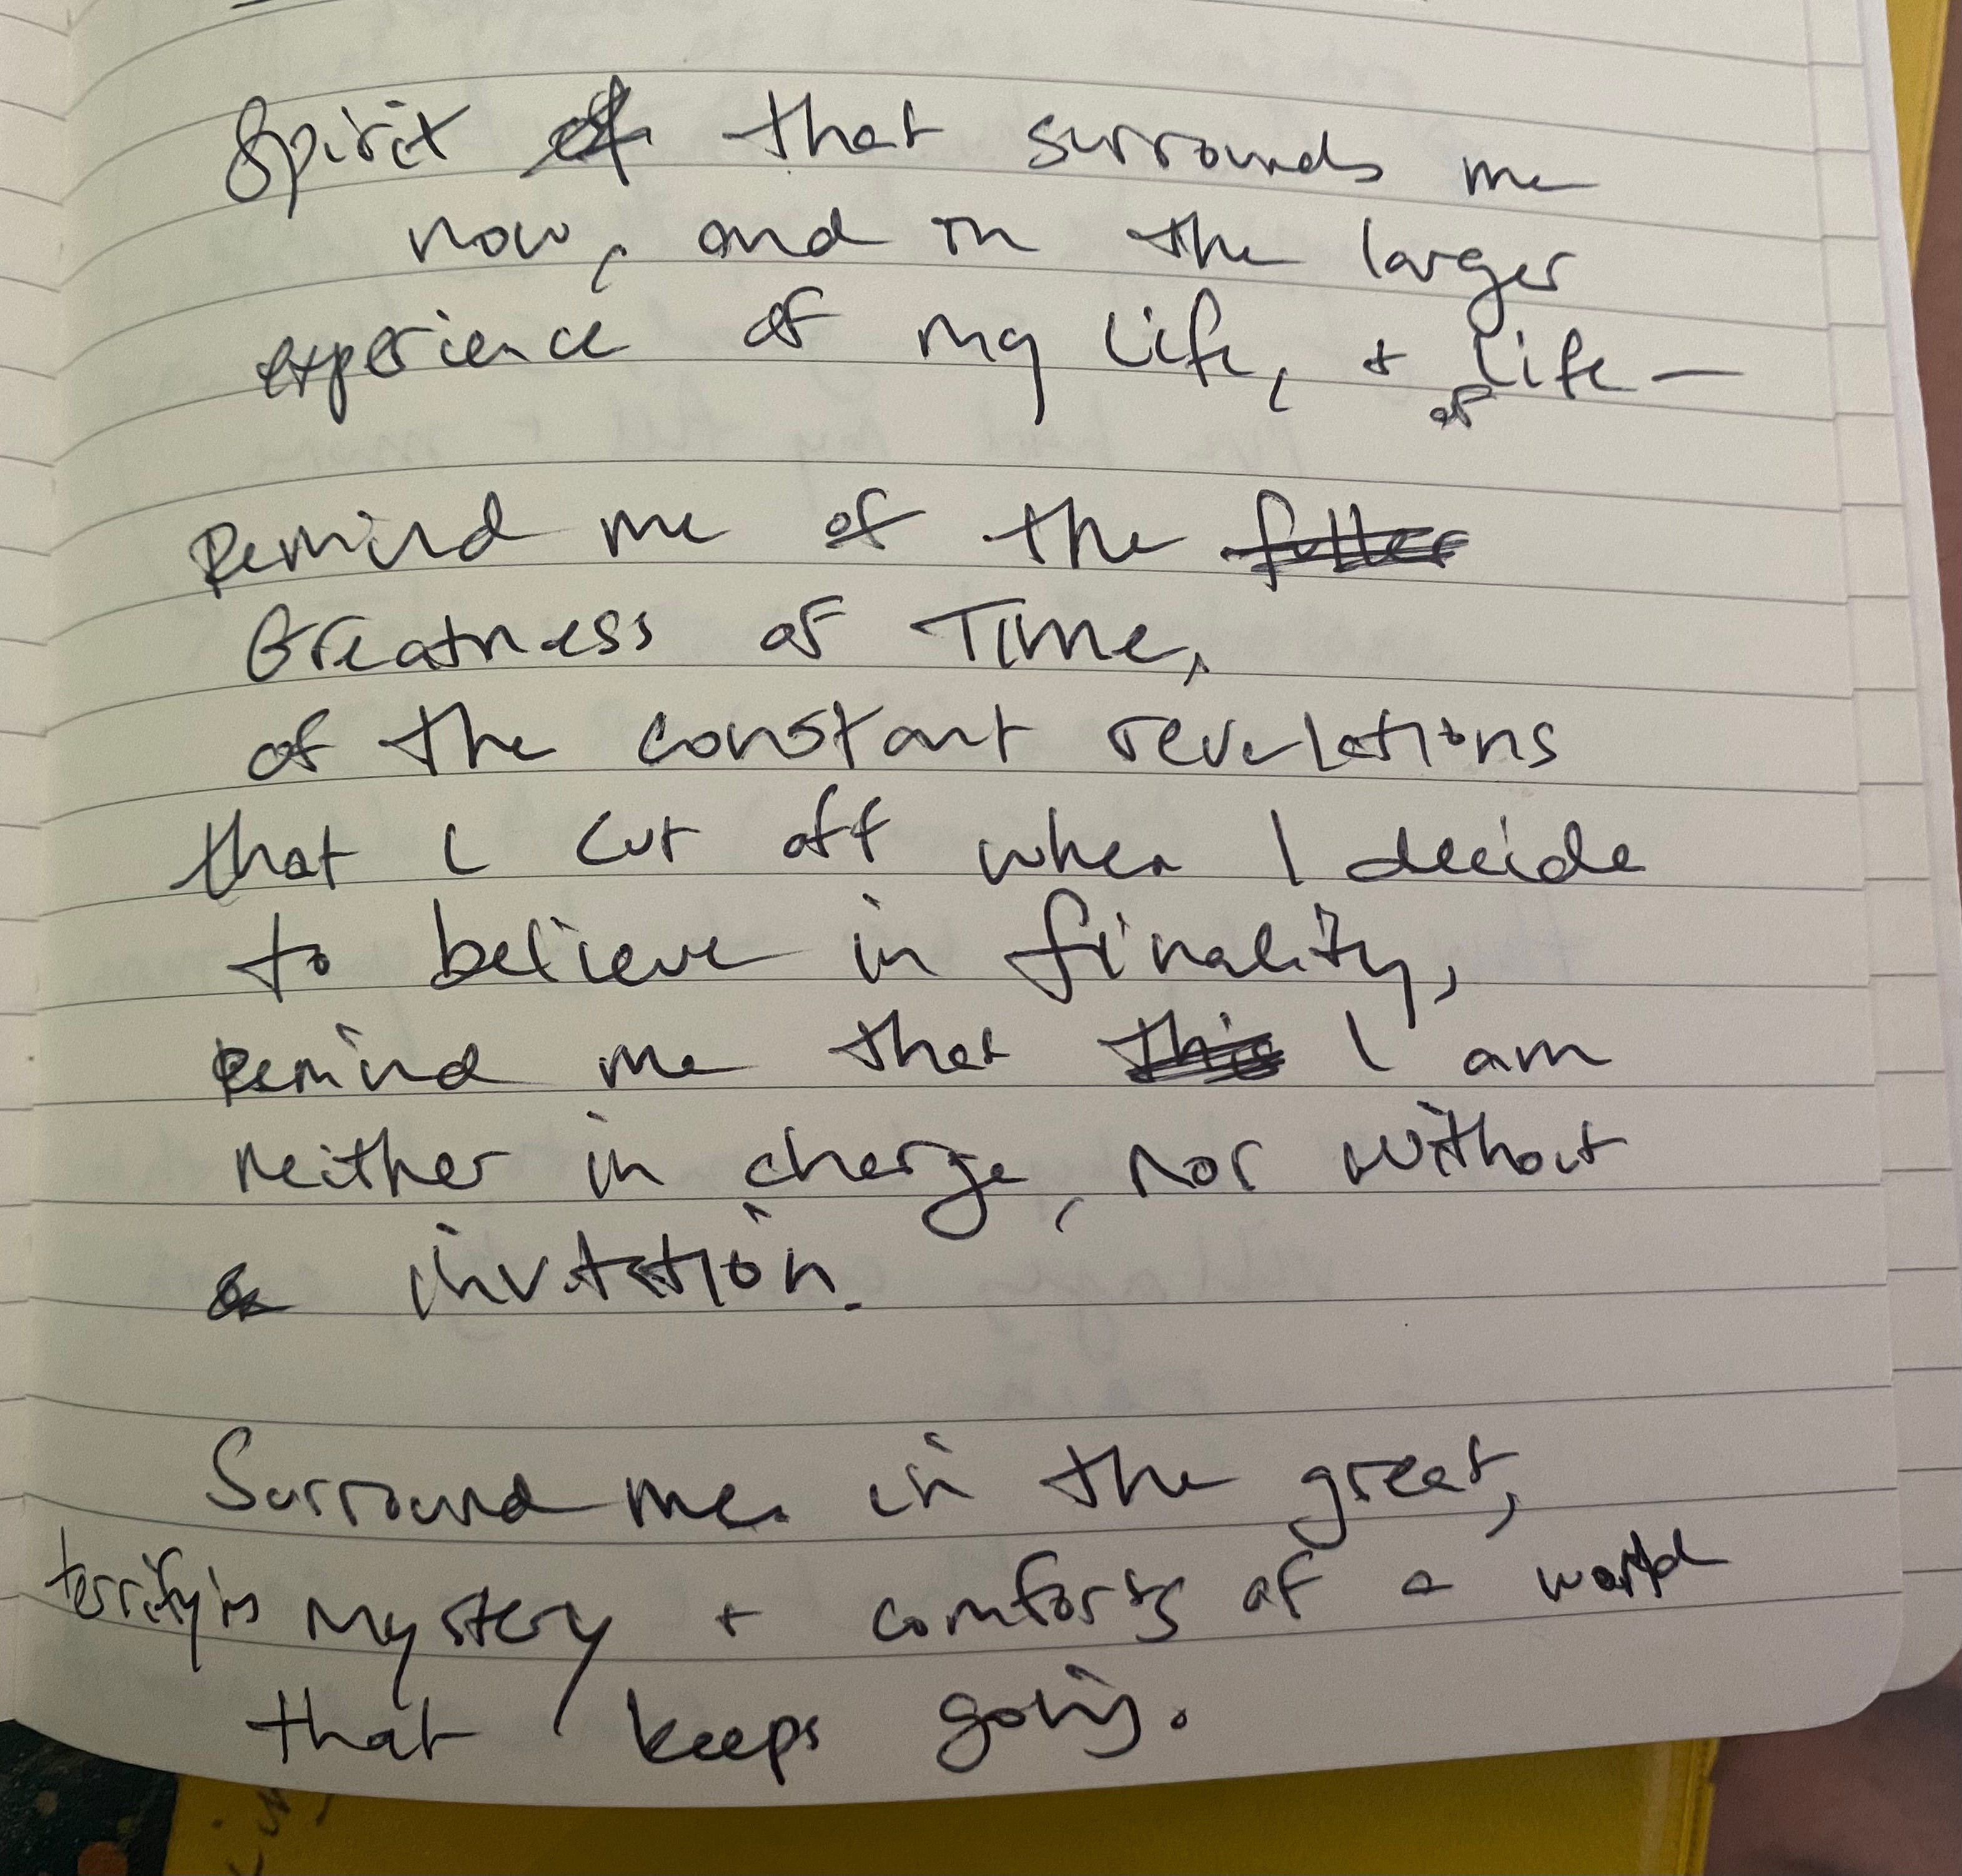 Spirit of that surrounds me
now, and in the larger
experience of my life, + of life —
Remind me of the fuller
Greatness of Time,
of the constant revelations
that I cut off when I decide
to believe in finality,
Remind me that this I am
neither in charge, nor without
a invitation.
Surround me in the great,
terrifying mystery + comforts of a world
that keeps going.